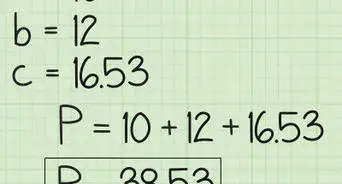 b = 12
c = 16.53
P = 10 + 12 + 16.53
P = 38.53